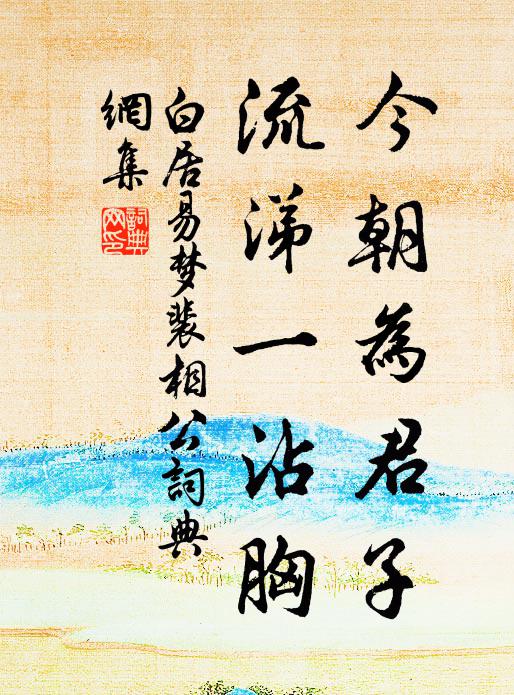 今朝為君子
流涕一沾胸
白居易梦裴相公詞典
網集
詞典
网印